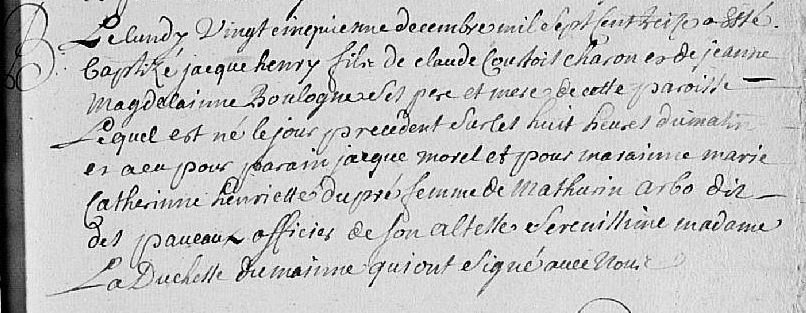 Le lundy vingt cinquiesme decembre mil sept cent treize a esté
baptizé jacque henry fils de claude Coustois charon et de jeanne
Magdelainne Boulogne ses pere et mere de cette paroisse
Lequel est né le jour precedent sur les huit heures du matin
et a eu pour parain jacque morel et pour marainne marie
Catherinne henriette dupré femme de Mathurin arbo dit
des paveaux officier de son altesse serenissime madame
La Duchesse dumainne qui ont signé avec Nous